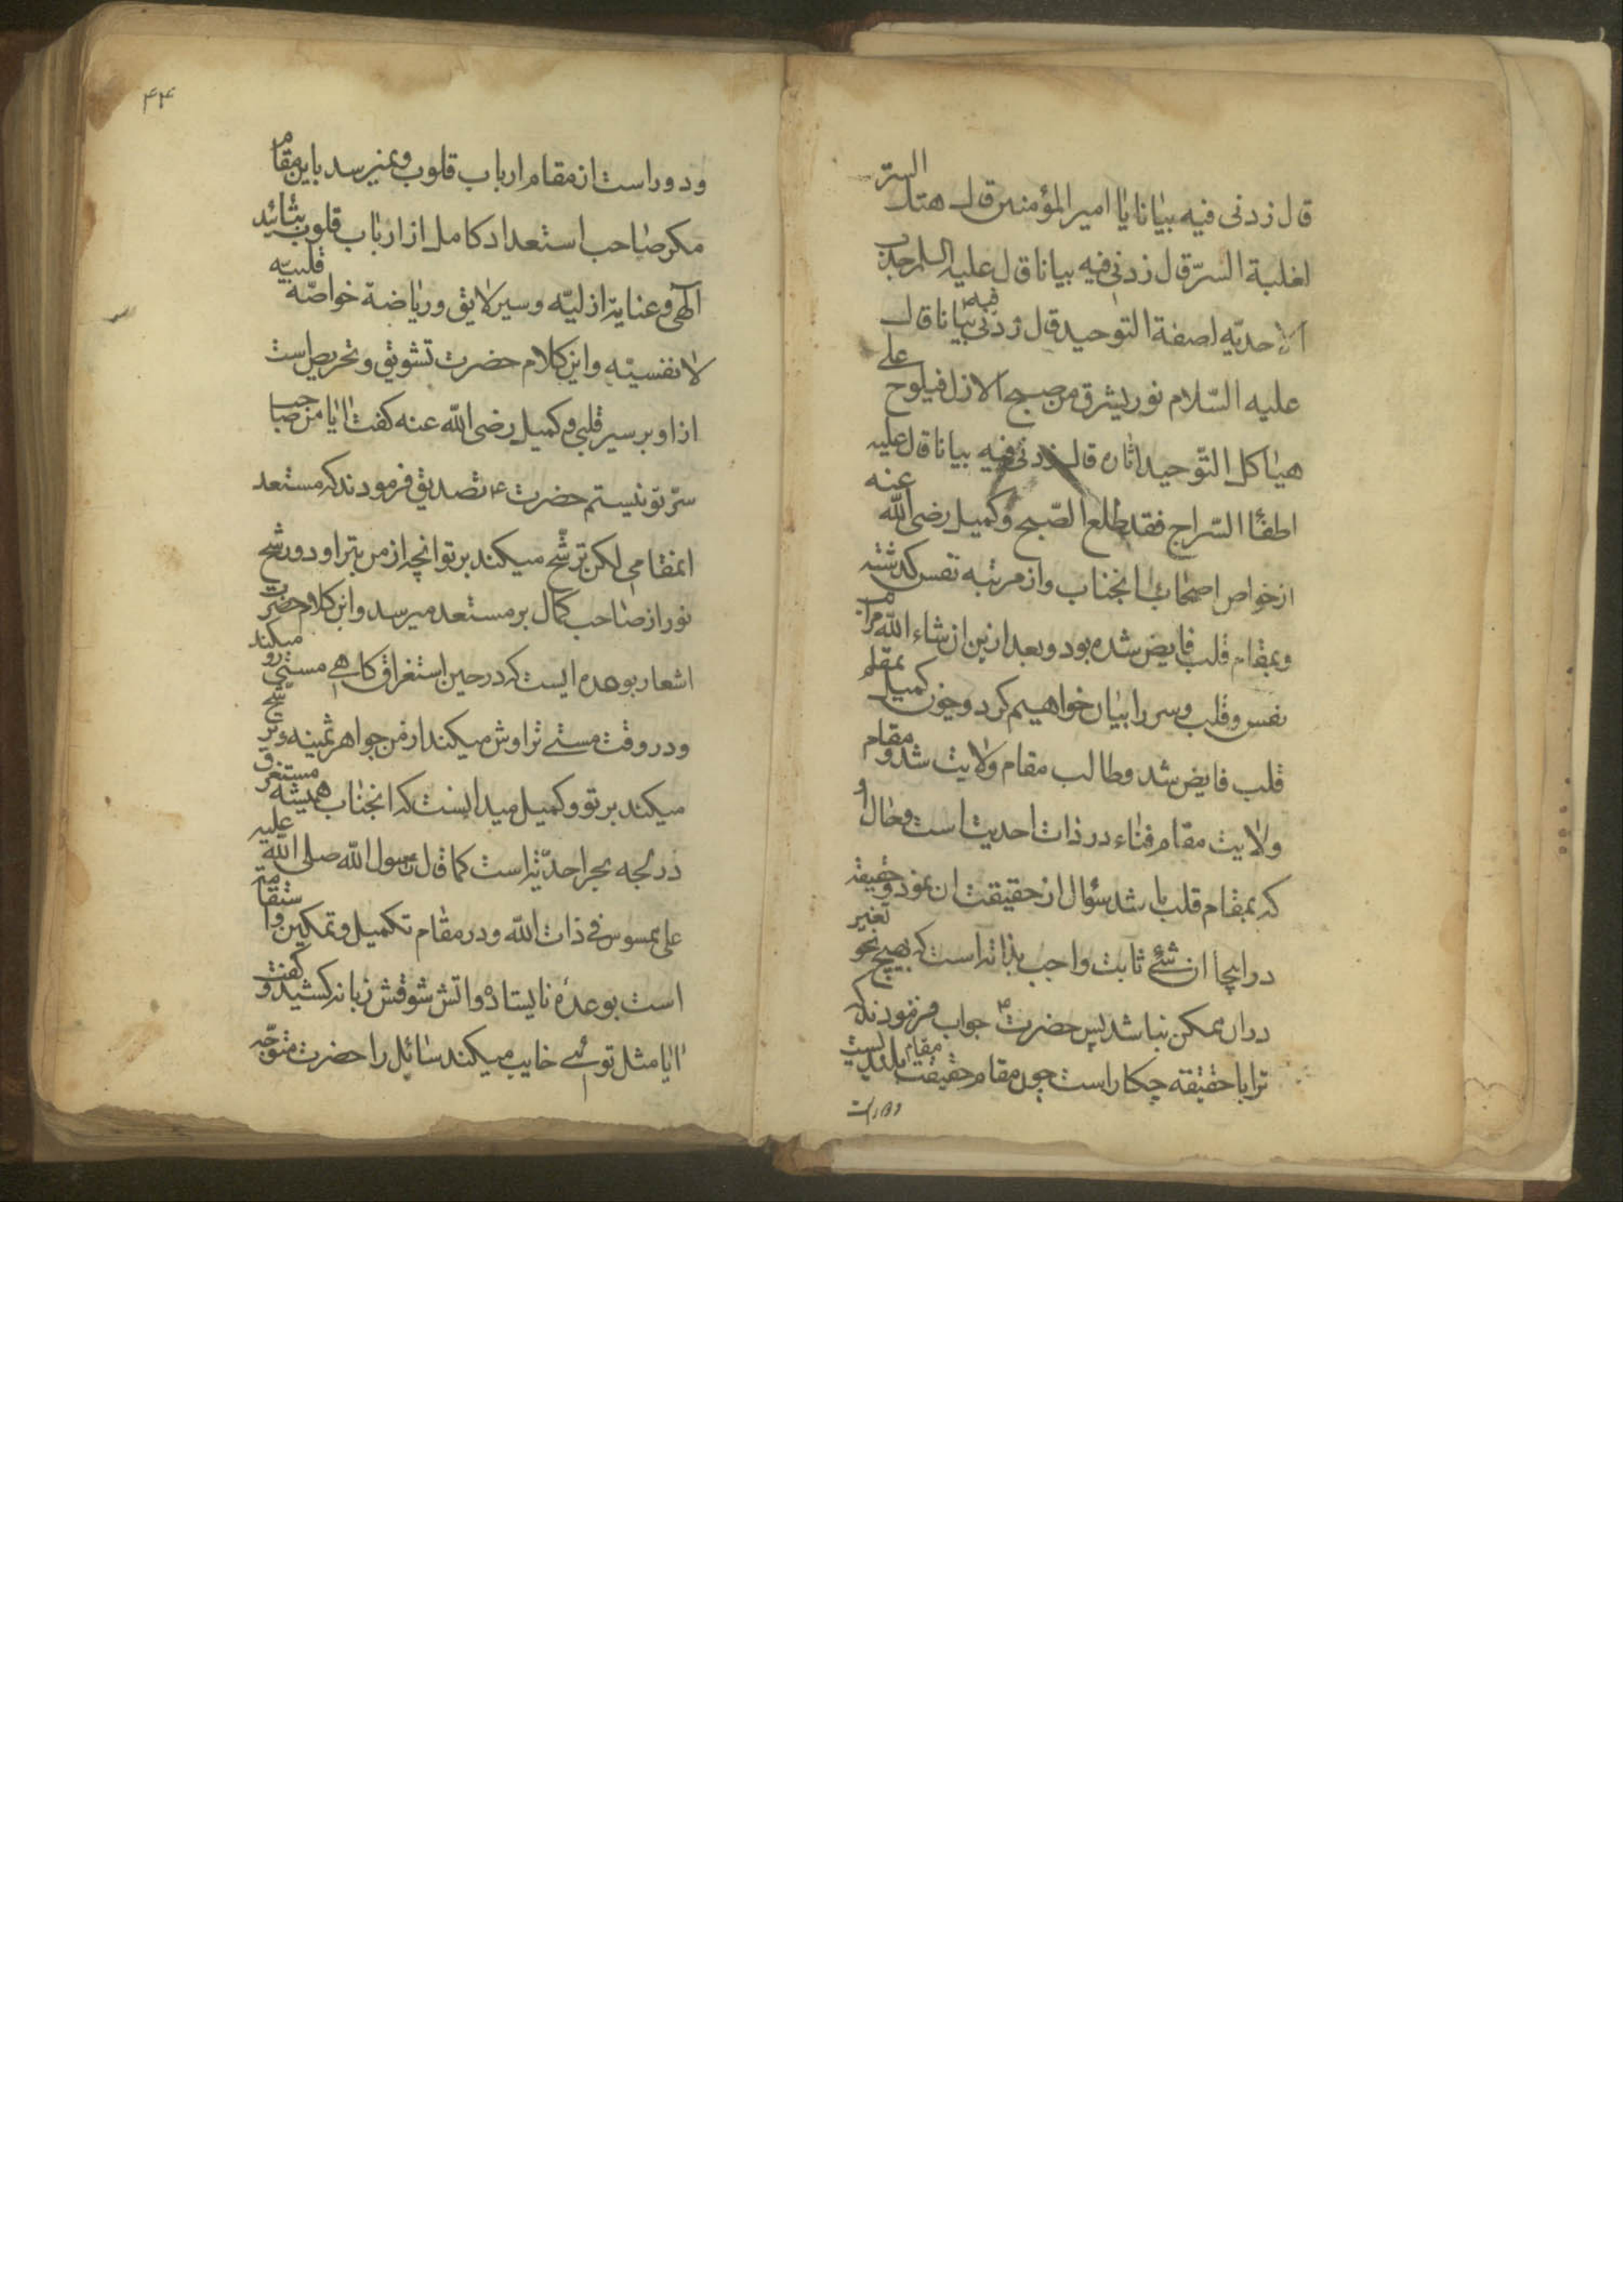 قال زدنی فیه بیانا یا امیر المؤمنین قال هتك الستر
لغلبة السرّ قال زدنی فیه بیانا قال علیه السلام جذب
الاحدیّه لصفة التوحید قال زدنی فیه بیانا قال
علیه السّلام نور یشرق من صبح الازل فیلوح علی
هیاکل التّوحید اثاره قال زدنی فیه بیانا قال علیه
اطفأ السّراج فقد طلع الصّبح وکمیل رضی الله عنه
از خواص اصحاب انجناب واز مرتبه نفس کذشته
وبمقام قلب فایض شده بود وبعد ازین انشاء الله مراتب
نفس وقلب وسر را بیان خواهیم کرد وچون کمیل بمقام
قلب فایض شد وطالب مقام ولایت شد ومقام
ولایت مقام فناء در ذات احدیت است وحال او
که بمقام قلب باشد سؤال از حقیقت ان نمود وحقیقه
در اینجا ان شئ ثابت واجب بذاته است که بهیچ نحو تغیر
دران ممکن نباشد پس حضرت ع جواب فرمودند که
ترا با حقیقه چکار است چون مقام حقیقت مقام بلندیست
ودوراست
۴۴
ودوراست از مقام ارباب قلوب ونمیرسد باین مقام
مکر صاحب استعداد کامل از ارباب قلوب بتائید
الهی وعنایة ازلیّه وسیر لایق وریاضة خواصّه قلبیّه
لا نفسیّه واین کلام حضرت تشویق وتحریص است
از او بر سیر قلبی وکمیل رضی الله عنه کفت اایا من صاحب
سرّ تو نیستم حضرت ع تصدیق فرمودند که مستعد
انمقامی لکن ترشّح میکند بر تو انچه از من بتراود ورشح
نور از صاحب کمال بر مستعد میرسد واین کلام حضرت
اشعار بوعده ایست که در حین استغراق کاهی مستی رو میکند
ودر وقت مستی تراوش میکند از من جواهر ثمینه وترشح
میکند بر تو وکمیل میدانست که انجناب همیشه مستغرق
در لجه بحر احدیّة است کما قال رسول الله صلی الله علیه
علی ممسوس فی ذات الله ودر مقام تکمیل وتمکین واستقامة
است بوعده نایستاد واتش شوقش زبانه کشید وکفت
اایا مثل توئی خایب میکند سائل را حضرت متوجّه